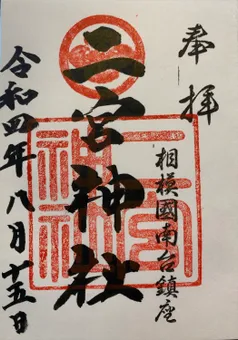 奉拝
相模國南台鎮座
二宮神社
令和四年八月十五日
二宮
神社